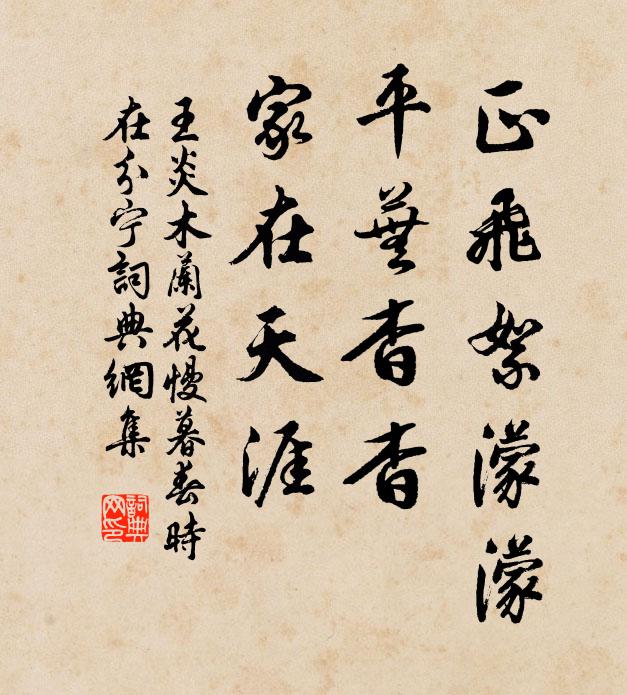 正飛絮濛濛
平蕪杳杳
家在天涯
王炎木蘭花慢暮春時
在分宁詞典網集
詞典
网印